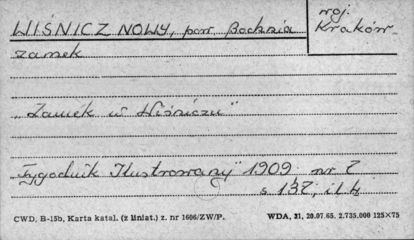 WIŚNICZ NOWY, pow. Bochnia
woj.
Kraków
zamek
„Zamek w Wiśniczu"
„Tygodnik Ilustrowany" 1909 nr 7
s 137, il 4
CWD, B-15b, Karta katal. (z liniat.) z. nr 1606/ZW/P. WDA, 31, 20.07.65. 2.735.000 125×75